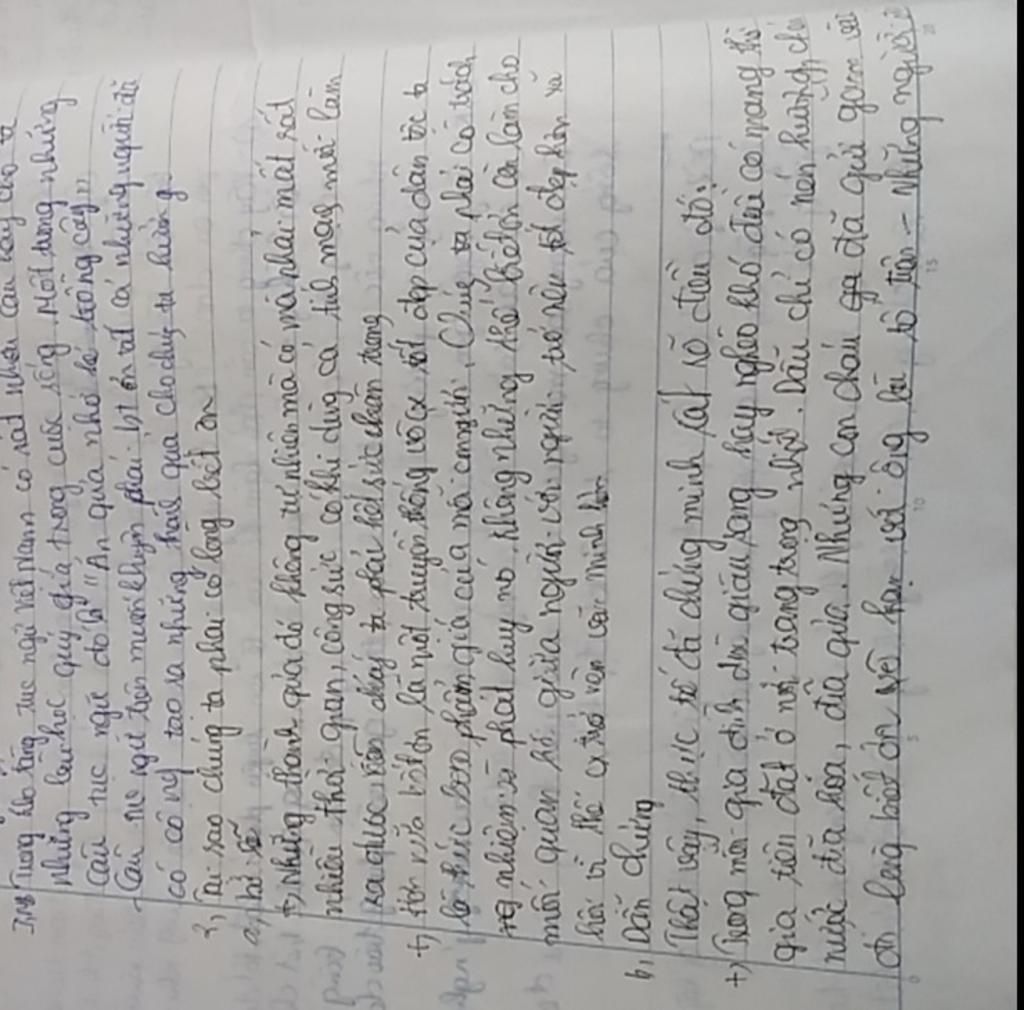 Trong kho tàng tục ngữ Việt Nam có rất nhiều câu hay cho ta
những bài học quý giá trong cuộc sống. Một trong những
câu tục ngữ đó là "Ăn quả nhớ kẻ trồng cây"
- Câu tục ngữ trên muốn khuyên phải biết ơn tất cả những người đã
có công tạo ra những thành quả cho chúng ta hưởng.
2, Tại sao chúng ta phải có lòng biết ơn
a, Lí lẽ
+) Những thành quả đó không tự nhiên mà có mà phải mất rất
nhiều thời gian, công sức có khi dùng cả tính mạng mới làm
ra được nên chúng ta phải hết sức trân trọng
+) Hơn nữa biết ơn là một truyền thống vô cx tốt đẹp của dân tộc ta
là thước đo phẩm giá của mỗi con người. Chúng ta phải có trách
nhiệm và phát huy nó. Không những thế biết ơn còn làm cho
mối quan hệ giữa người với người trở nên tốt đẹp hơn xã
hội vì thế cx trở nên văn minh hơn
b, Dẫn chứng
Thật vậy, thực tế đã chứng minh rất rõ điều đó:
+) Trong mỗi gia đình dù giàu sang hay nghèo khó đều có nang thờ
gia tiên đặt ở nơi trang trọng nhất. Dẫu chỉ có nén hương, chén
nước đĩa hóa, đĩa quả. Nhưng con cháu đã gửi gắm vào
đó lòng biết ơn vô hạn với ông bà tổ tiên - Những người đã